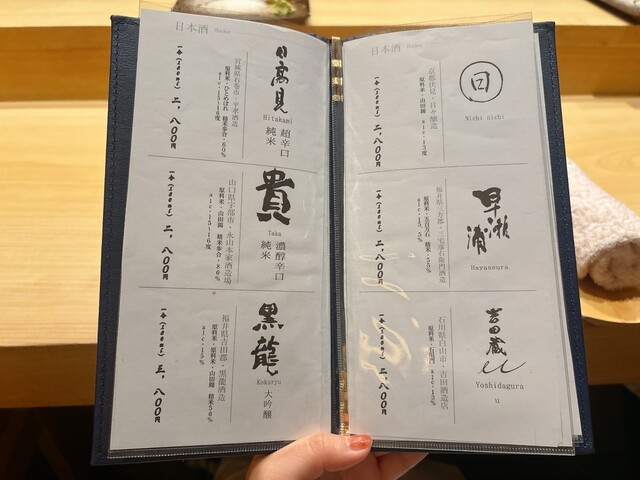 日本酒 Sake
日高見
Hitakami
超辛口
純米
宮城県石巻市・平孝酒造
原料米・ひとめぼれ 精米歩合・60%
alc・15〜16度
一合(180ml) 二,八〇〇円
貴
Taka
濃醇辛口
純米
山口県宇部市・永山本家酒造場
原料米・山田錦 精米歩合・80%
alc・15〜16度
一合(180ml) 二,八〇〇円
黒龍
Kokuryu
大吟醸
福井県吉田郡・黒龍酒造
原料米・山田錦 精米50%
alc・15%
一合(180ml) 三,八〇〇円
日本酒 Sake
日
Nichi nichi
京都伏見・日々醸造
原料米・山田錦 alc・13度
一合(180ml) 二,八〇〇円
早瀬浦
Hayaseura
福井県三方郡・三宅彦右衛門酒造
原料米・五百万石 精米・55%
一合(180ml) 二,八〇〇円
吉田蔵u
Yoshidagura
u
石川県白山市・吉田酒造店
alc・13%
一合(180ml) 二,八〇〇円